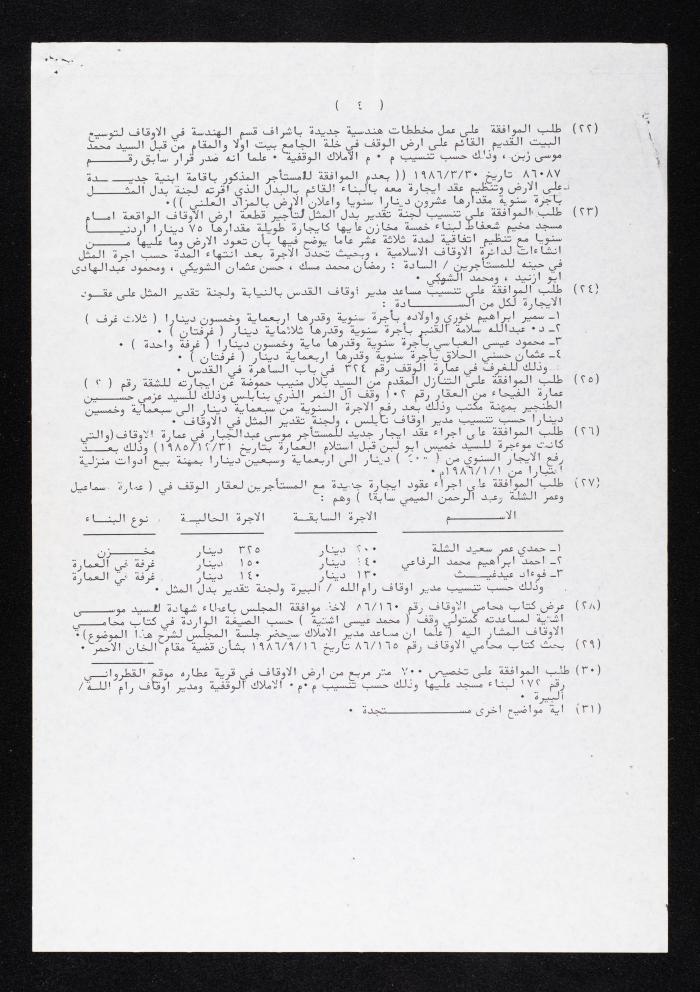 ( ٤ )
(٢٢) طلب الموافقة على عمل مخططات هندسية جديدة باشراف قسم الهندسة في الاوقاف لتوسيع
البيت القديم القائم على ارض الوقف في خلة الجامع بيت اولا والمقام من قبل السيد محمد
موسى زبن ، وذلك حسب تنسيب م ٠ م الاملاك الوقفية ٠ علما انه صدر قرار سابق رقـــــم
٨٦٠٨٧ تاريخ ١٩٨٦/٣/٣٠ (( بعدم الموافقة للمستأجر المذكور باقامة ابنية جديـــــدة
على الارض وتنظيم عقد ايجارة معه بالبناء القائم بالبدل الذي اقرته لجنة بدل المثـــل
باجرة سنوية مقدارها عشرون دينارا سنويا واعلان الارض بالمزاد العلني ))٠
(٢٣) طلب الموافقة على تنسيب لجنة تقدير بدل المثل لتأجير قطعة ارض الاوقاف الواقعة امـام
مسجد مخيم شعفاط لبناء خمسة مخازن عليها كايجارة طويلة مقدارها ٧٥ دينارا اردنيـــا
سنويا مع تنظيم اتفاقية لمدة ثلاثة عشر عاما يوضح فيها بأن تعود الارض وما عليها مـــن
انشاءات لدائرة الاوقاف الاسلامية ، وبحيث تحدد الاجرة بعد انتهاء المدة حسب اجرة المثل
في حينه للمستأجرين / السادة : رمضان محمد مسك ، حسن عثمان الشويكي ، ومحمود عبدالهادى
ابو ازنيد ، ومحمد الشهكي ٠
(٢٤) طلب الموافقة على تنسيب مساعد مدير اوقاف القدس بالنيابة ولجنة تقدير المثل على عقـود
الايجارة لكل من الســـــــادة :
١ــ سمير ابراهيم خوري واولاده بأجرة سنوية وقدرها اربعماية وخمسون دينارا ( ثلاث غرف )
٢ــ د٠ عبدالله سلامة القنبر بأجرة سنوية وقدرها ثلاثماية دينار ( غرفتان ) ٠
٣ــ محمود عيسى العباسي بأجرة سنوية وقدرها ماية وخمسون دينارا ( غرفة واحدة ) ٠
٤ــ عثمان حسني الحلاق بأجرة سنوية وقدرها اربعماية دينار ( غرفتان ) ٠
وذلك للغرف في عمارة الوقف رقم ٣٢٤ في باب الساهرة في القدس ٠
(٢٥) طلب الموافقة على التنازل المقدم من السيد بلال منيب حموضة عن ايجارته للشقة رقم ( ٢ )
عمارة الفيحاء من العقار رقم ١٠٢ وقف آل النمر الذي بنابلس وذلك للسيد عزمي حســـين
الطنجير بمهنة مكتب وذلك بعد رفع الاجرة السنوية من سبعماية دينار الى سبعماية وخمسين
دينارا حسب تنسيب مدير اوقاف نابلس ، ولجنة تقدير المثل في الاوقاف ٠
(٢٦) طلب الموافقة على اجراء عقد ايجار جديد للمستأجر موسى عبدالجبار في عمارة الاوقاف(والتي
كانت موءجرة للسيد خميس ابو لبن قبل استلام العمارة بتاريخ ١٩٨٥/١٢/٣١) وذلك بعـــد
رفع الايجار السنوي من ( ٤٠٠ ) دينار الى اربعماية وسبعين دينارا بمهنة بيع ادوات منزلية
اعتبارا من ١٩٨٦/١/١م ٠
(٢٧) طلب الموافقة على اجراء عقود ايجارة جديدة مع المستأجرين لعقار الوقف في ( عمارة سماعيل
وعمر الشلة وعبد الرحمن الميمي سابقا ) وهم :
الاســـــــم الاجرة السابقـــة الاجرة الحاليـــة نوع البنـــاء
١ــ حمدي عمر سعيد الشلة ٢٠٠ دينار ٣٢٥ دينار مخـــزن
٢ــ احمد ابراهيم محمد الرفاعي ١٤٠ دينار ١٥٠ دينار غرفة في العمارة
٣ــ فوءاد عيدغيـــث ١٣٠ دينار ١٤٠ دينار غرفة في العمارة
وذلك حسب تنسيب مدير اوقاف رام الله / البيرة ولجنة تقدير بدل المثل ٠
(٢٨) عرض كتاب محامي الاوقاف رقم ٨٦/١٦٠ لاخذ موافقة المجلس باعطاء شهادة للسيد موســـى
اشتية لمساعدته كمتولي وقف ( محمد عيسى اشتية ) حسب الصيغة الواردة في كتاب محامـــي
الاوقاف المشار اليه ( علما ان مساعد مدير الاملاك سيحضر جلسة المجلس لشرح هذا الموضوع)٠
(٢٩) بحث كتاب محامي الاوقاف رقم ٨٦/١٦٥ تاريخ ١٩٨٦/٩/١٦ بشأن قضية مقام الخان الاحمر ٠
(٣٠) طلب الموافقة على تخصيص ٧٠٠ متر مربع من ارض الاوقاف في قرية عطاره موقع القطروانـــي
رقم ١٧٢ لبناء مسجد عليها وذلك حسب تنسيب م٠م٠ الاملاك الوقفية ومدير اوقاف رام اللـه/
البيرة ٠
(٣١) اية مواضيع اخرى مستـــــــجدة ٠